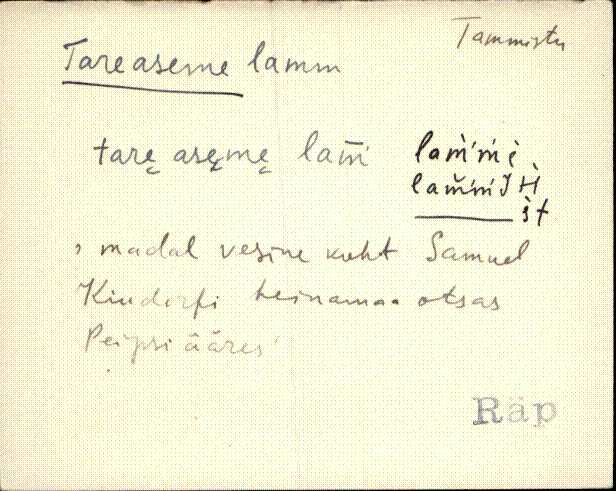 Tammistu
Tareaseme lamm
tarę asęmę lam̄ lam̀ḿè
madal vesine koht Samuel
Kindorfi heinamaa otsas
Peipsi ääres
Räp